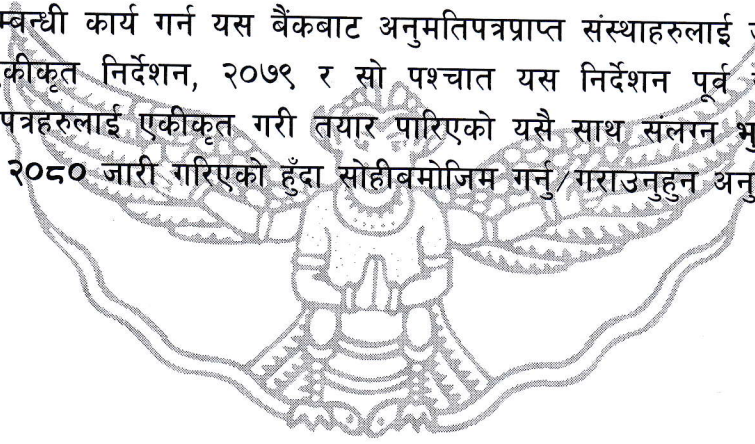 म्बन्धी कार्य गर्न यस बैंकबाट अनुमतिपत्रप्राप्त संस्थाहरुलाई
कीकृत निर्देशन, २०७९ र सो पश्चात यस निर्देशन पूर्व
पत्रहरुलाई एकीकृत गरी तयार पारिएको यसै साथ संलग्न
२०८० जारी गरिएको हुँदा सोहीबमोजिम गर्नु/गराउनुहुन